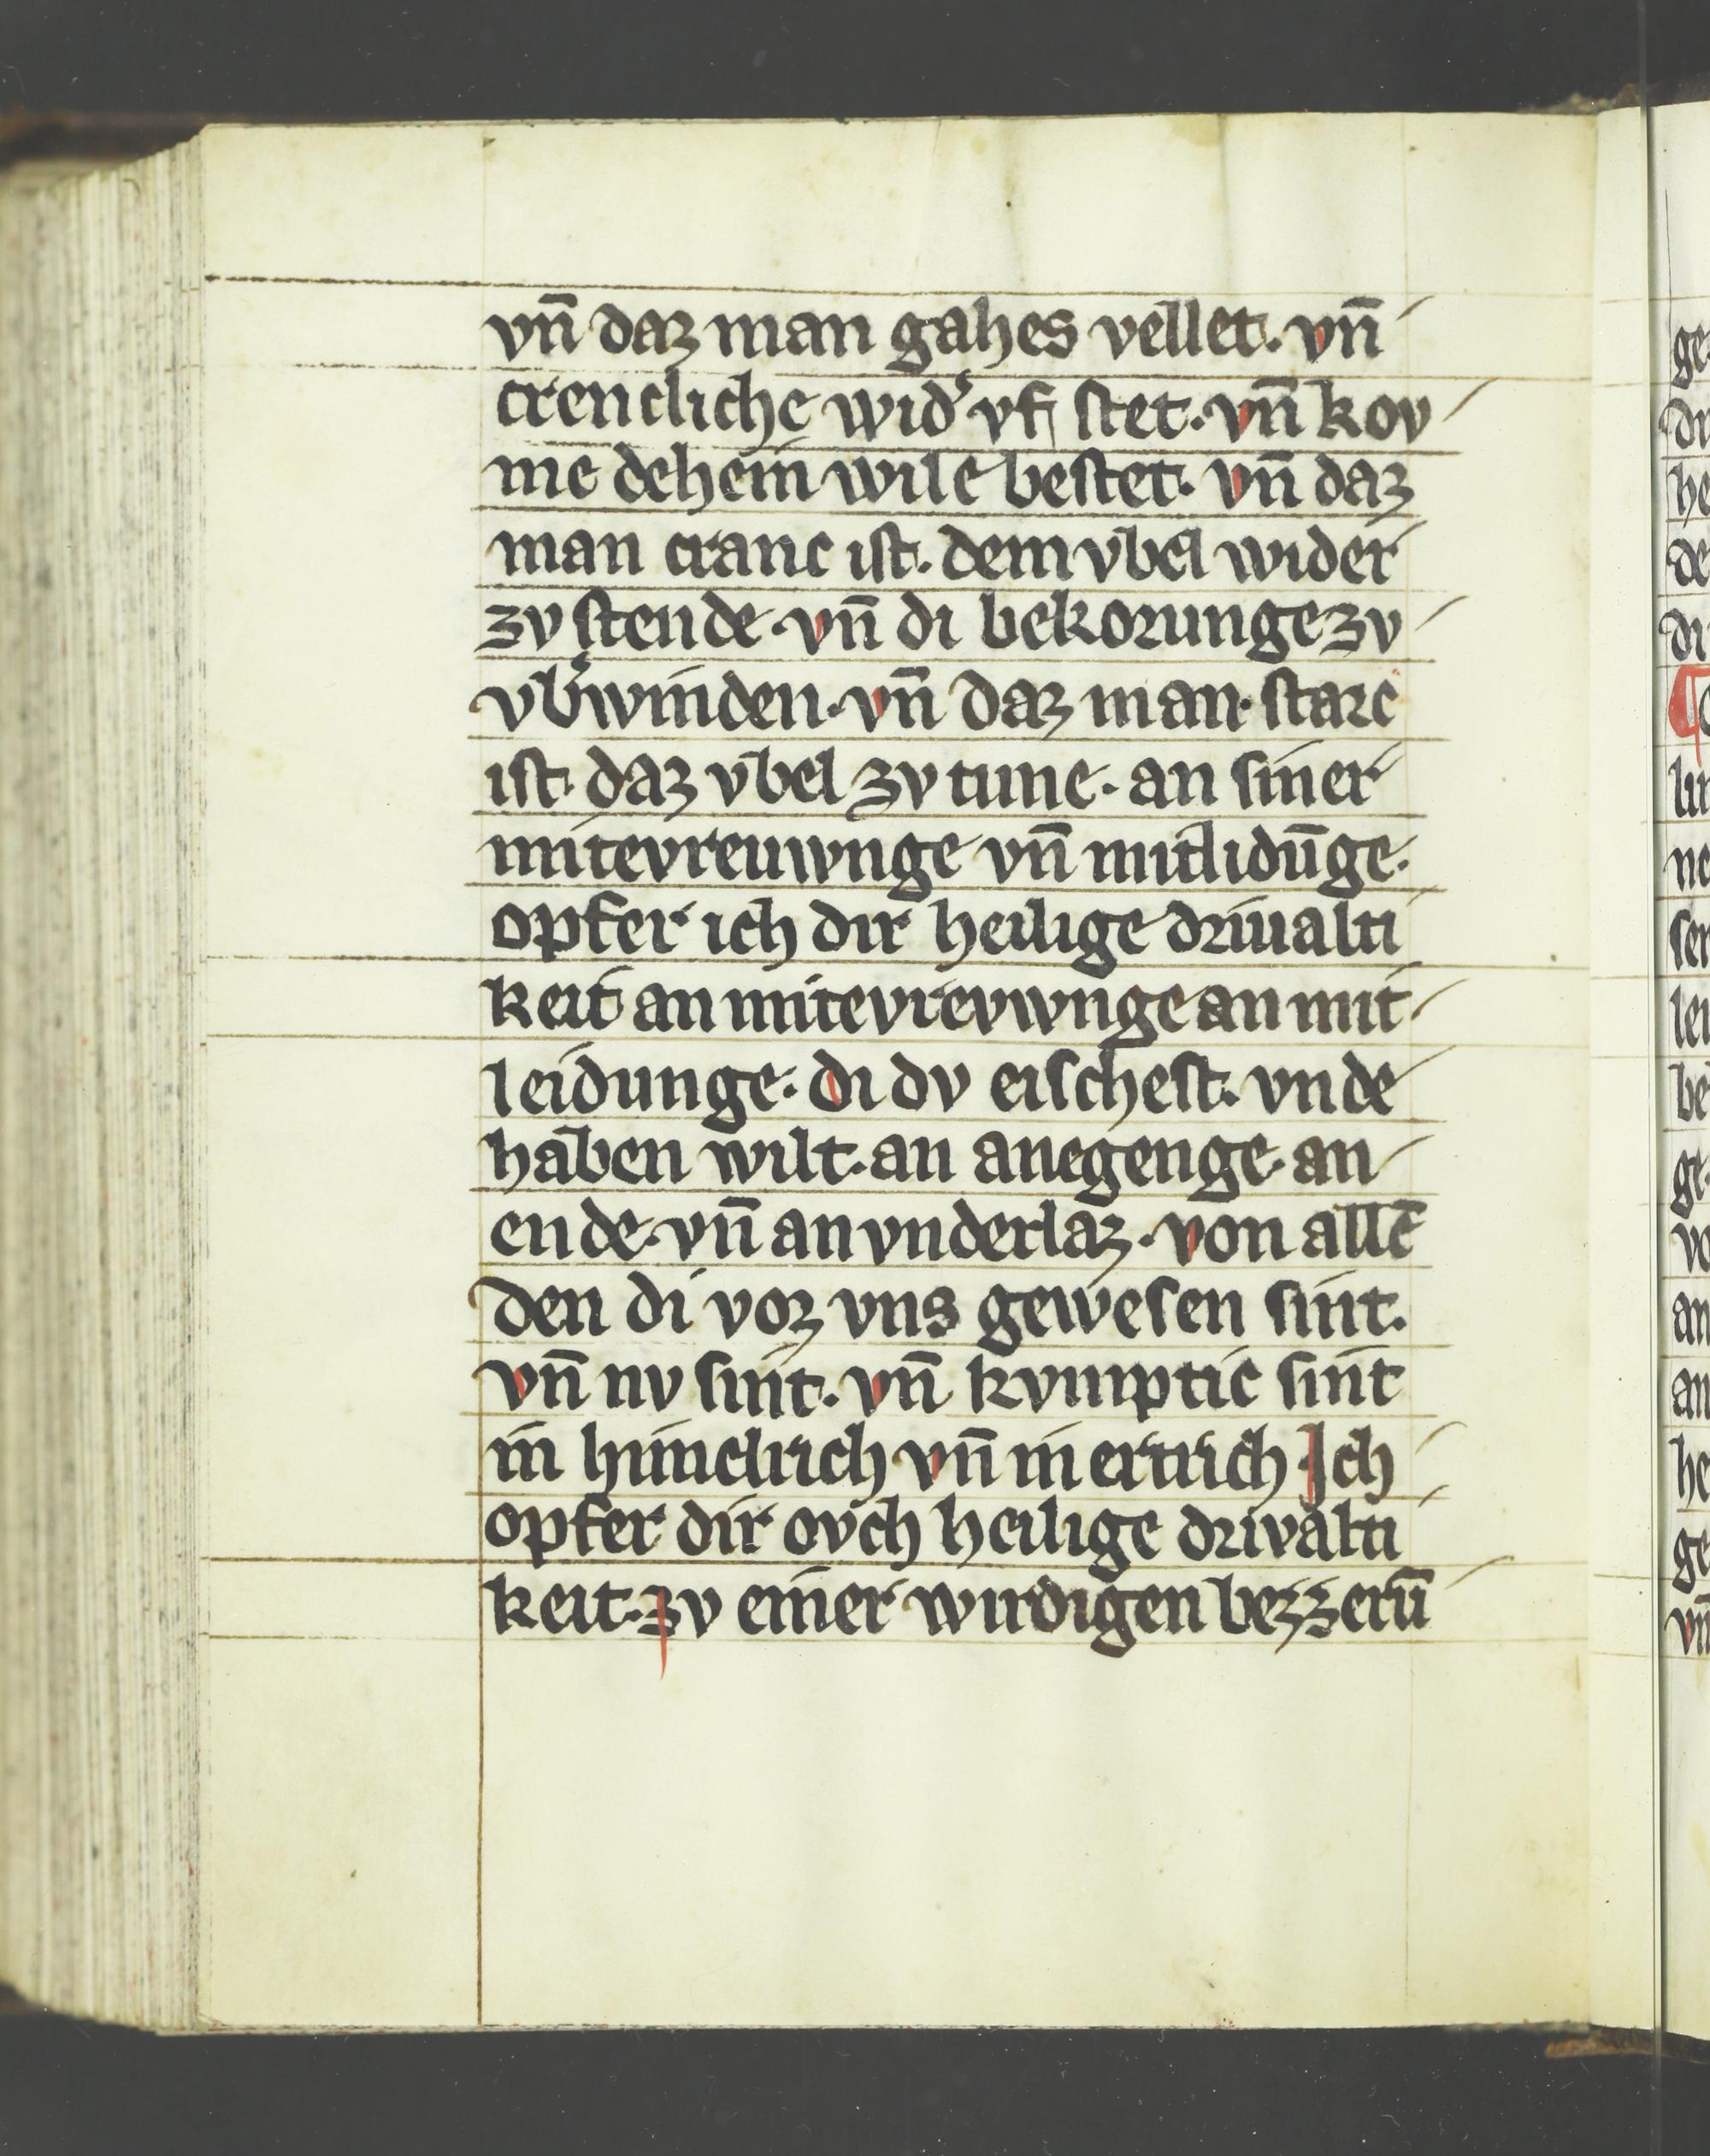 vn̄ daz man gahes vellet. vn̄
crencliche wid᾽ vf stet. vn̄ kov
me dehein wile bestet. vn̄ daz
man cranc ist. dem vbel wider
zv stende. vn̄ di bekorunge zv
vb᾽winden. vn̄ daz man starc
ist. daz vbel zv tune. an siner
mitevreuwnge vn̄ mitlidūge.
opfer ich dir heilige driualti
keit an mitevrevwnge an mit
leidunge. di dv eischest. vnde
haben wilt. an anegenge. an
ende. vn̄ an vnderlaz. von allē
den di vor vns gewesen sint.
vn̄ nv sint. vn̄ kvmptic sint
in himelrich vn̄ in ertrich Ich
opfer dir ovch heilige drivalti
keit. zv einer wirdigen bezzerū